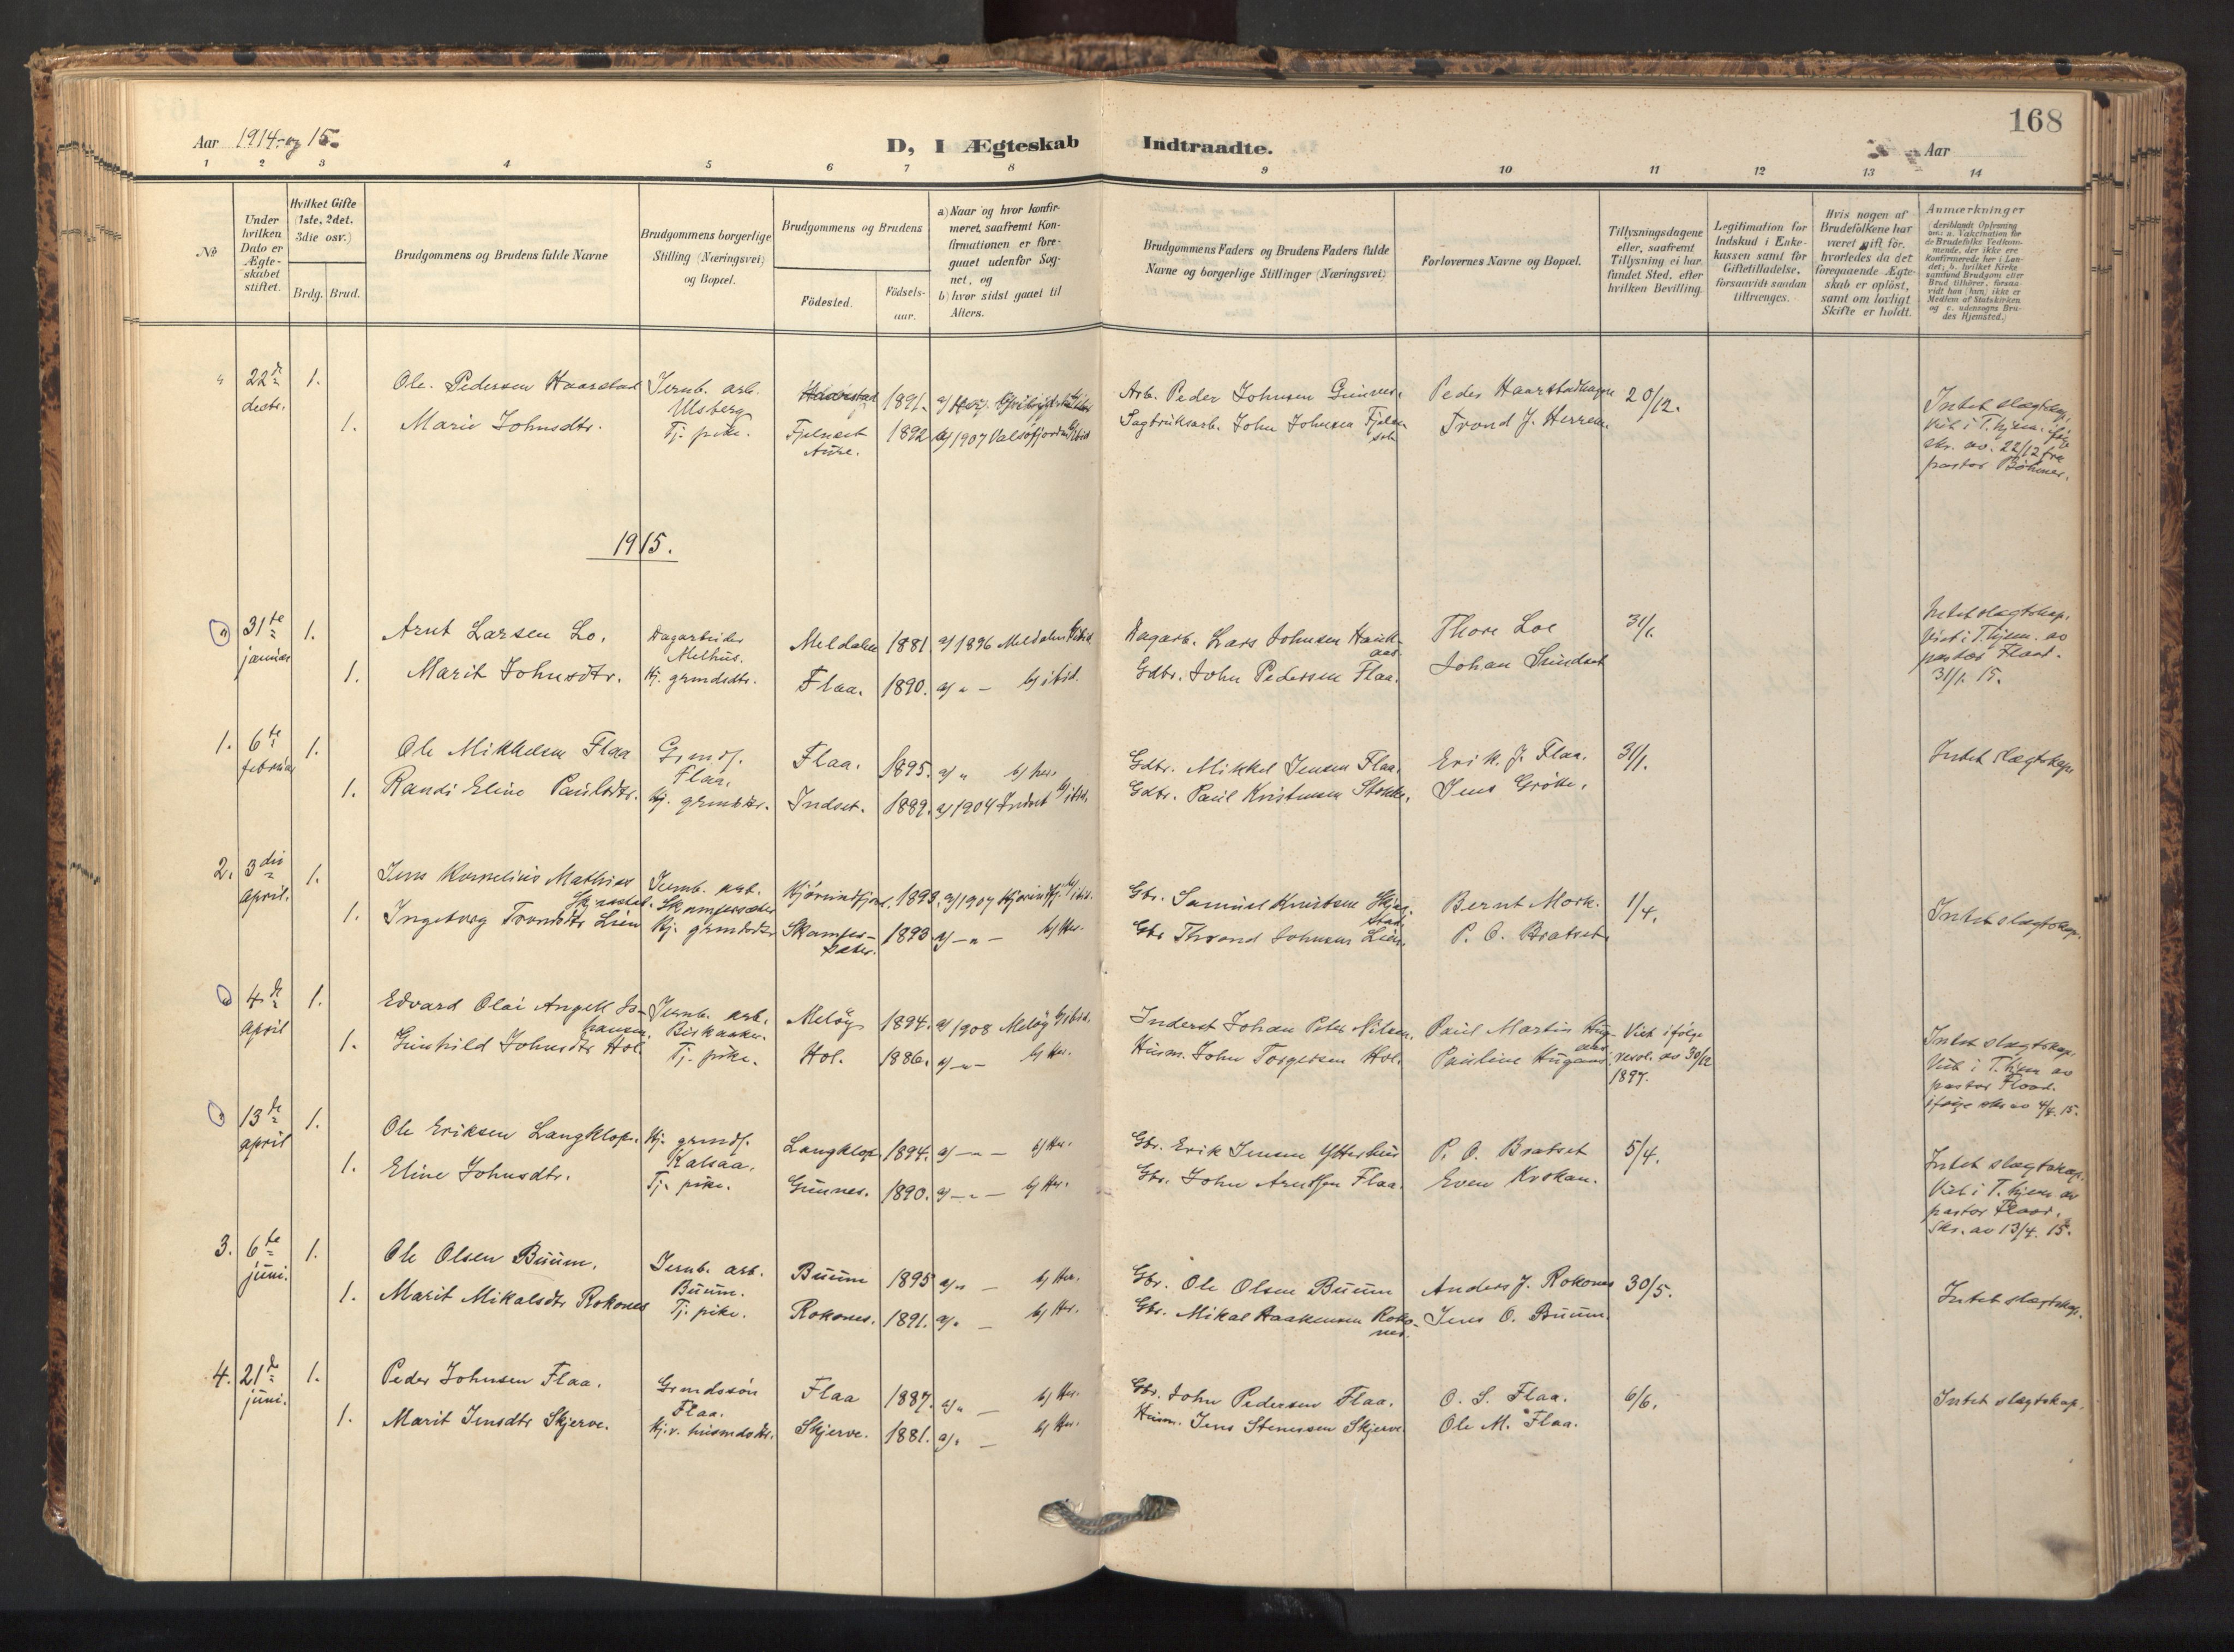 168
Aar 1914 og 15.
D, I Ægteskab Indtraadte.
Aar
1 2 3 4 5 6 7 8 9 10 11 12 13 14
No
Under hvilken Dato er Ægteskabet stiftet.
Hvilket Gifte (1ste, 2det, 3die osv.)
Brdg. Brud.
Brudgommens og Brudens fulde Navne
Brudgommens borgerlige Stilling (Næringsvei) og Bopæl.
Brudgommens og Brudens
Födested.
Födsels-aar.
a) Naar og hvor konfirmeret, saafremt Konfirmationen er foregaaet udenfor Sognet, og
b) hvor sidst gaaet til Alters.
Brudgommens Faders og Brudens Faders fulde Navne og borgerlige Stillinger (Næringsvei)
Forlovernes Navne og Bopæl.
Tillysningsdagene eller, saafremt Tillysning ei har fundet Sted, efter hvilken Bevilling.
Legitimation for Indskud i Enkekassen samt for Giftetilladelse, forsaavidt saadan tiltrænges.
Hvis nogen af Brudefolkene har været gift för, hvorledes da det foregaaende Ægteskab er oplöst, samt om lovligt Skifte er holdt.
Anmærkninger
22de decbr. 1. Ole Pedersen Haarstad Jernb. arb. Ulsberg 1891. Arb. Peder Johnsen Gunnes. Peder Haarstadhagen 20/12. Intet slægtskap.
1. Marie Johnsdtr. Tj. pike. Aure. 1892 1907 Valsöfjorden Sagbruksarb. John Johnsen Trond J. Herrem.
Viet i T.hjem. ifølge skr. av 22/12 fra pastor Böhmer.
1915.
31te januar 1. Arnt Larsen Lo. Dagarbeider Melhus. Meldalen 1881 a) 1896 Meldalen b) ibid. Dagarb. Lars Johnsen Thore Loe 31/1. Intet slægtskap.
1. Marit Johnsdtr. Hj. grmdsdtr. Flaa. 1890. a) " - b) ibid. Gdbr. John Pedersen Flaa. Johan Sundset
Viet i T.hjem. av pastor Flood. 31/1. 15.
1. 6te februar 1. Ole Mikkelsen Flaa Grmds. Flaa. Flaa. 1895. a) " b) her. Gdbr. Mikkel Jensen Flaa. Erik J. Flaa. 31/1. Intet slægtskap.
1. Randi Eline Paulsdtr. Hj. grmdsdtr. Indset. 1889. a) 1904 Indset b) ibid. Gdbr. Paul Kristensen Jens Gröte.
2. 3die april. 1. Jens Kornelius Mathias Skjaastad. Jernb. arb. Skamfersæter Hjörundfjord. 1893. a) 1907 Hjörundfj. b) ibid. Gbr. Samuel Knutsen Skjaastad. Bernt Mork. 1/4. Intet slægtskap.
1. Ingeborg Trondsdtr Lien Hj. grmdsdtr Skamfersæter. 1893 a) - " - b) Her. Gbr Thrond Johnsen Lien. P. O. Bratset.
4de april 1. Edvard Olai Angell Johansen. Jernb. arb. Birkaaker. Melöy 1894. a) 1908 Melöy b) ibid. Inderst Johan Peter Nilsen. Paul Martin Hugaas Viet ifølge resol. av 30/12 1897. Intet slægtskap.
1. Gunhild Johnsdtr Hol. Tj. pike. Hol. 1886. a) - " - b) Her. Husm. John Torgersen Hol. Pauline Hugaas
Viet i T.hjem av pastor Flood. ifølge skr av 4/4. 15.
13de april 1. Ole Eriksen Langklop. Hj. grmds. Kalsaa. Langklop 1894. a) - " - b) Her. Gbr. Erik Jensen Ytterhus P. O. Bratset 5/4. Intet slægtskap.
1. Eline Johnsdtr. Tj. pike. Gunnes. 1890. a) - " - b) Her. Gbr. John Arntsen Flaa. Even Krokan.
Viet i T.hjem av pastor Flood. Skr. av 13/4. 15.
3. 6te juni. 1. Ole Olsen Buum. Jernb. arb. Buum. Buum 1895 a) " - b) Her. Gbr. Ole Olsen Buum Anders J. Rokones 30/5. Intet slægtskap.
1. Marit Mikalsdtr Rokones Tj. pike. Rokones. 1891. a) " - b) Her. Gbr. Mikal Haakensen Rokones. Jens O. Buum.
4. 21de juni. 1. Peder Johnsen Flaa. Grmdssön Flaa. Flaa 1887. a) " - b) Her. Gbr. John Pedersen Flaa. O. S. Flaa. 6/6. Intet slægtskap.
1. Marit Jensdtr Skjerve. Hj.v. husmdsdtr. Skjerve. 1881. a) " - b) Her. Husm. Jens Stenersen Skjerve. Ole M. Flaa.